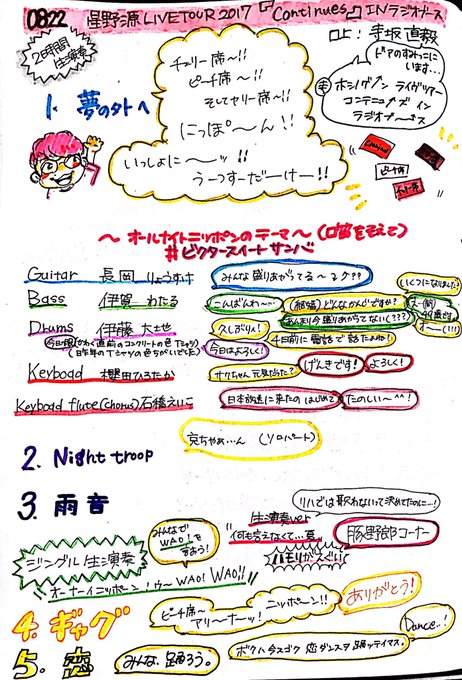 0822 星野源 LIVE TOUR 2017 『Continues』 IN ラジオブース
2時間
生演奏
口上: 寺坂直毅
ドアのすみっこに
います…
ホシノゲン ライヴツアー
コンテニューズ イン
ラジオブース
チェリー席〜!!
ピーチ席〜!!
そしてセリー席〜!!
にっぽ〜ん!!
いっしょに〜ッ!!
うーつすーだーけー!!
1. 夢の外へ
ピーチ席
〜オールナイトニッポンのテーマ〜(口笛をそえて)
#ビクタースイートサンバ
Guitar 長岡りょうすけ
みんな盛りあがてる〜ク??
いくつになりました?
Bass 伊賀わたる
こんばんわ〜
(結婚)どんなかんじですか?
あんまり今盛りあがってない(???)
Drums 伊藤大地
久しぶりん!
4日前に電話で話したよね!
オー(!!!)
(昨年のTシャツの色ちがいでした)
今日はよろしく!
Keyboad 櫻田ひろたか
サクちゃん元気だった?
げんきです!
よろしく!
Keyboad flute(chorus)石橋えいこ
日本放送に来たのはじめて
たのしい〜^^!
(ソロパート)
2. Night troop
3. 雨音
リハでは歌わないって決めてたのに…!
生演奏ver
何も考えなくて…罠
豚野郎コーナー
ハモりがえぐい
みんなで
WAO!を
言おう!
ジングル生演奏
オーナーイニッポーン!ウ〜WAO! WAO!!
4. ギャグ
ピーチ席〜
アリーナーッ!
ニッポーン!!
ありがとう!
5. 恋
みんな、踊ろう。
ボクハ今スゴク 恋ダンスヲ踊ッテイマス。
Dance..!